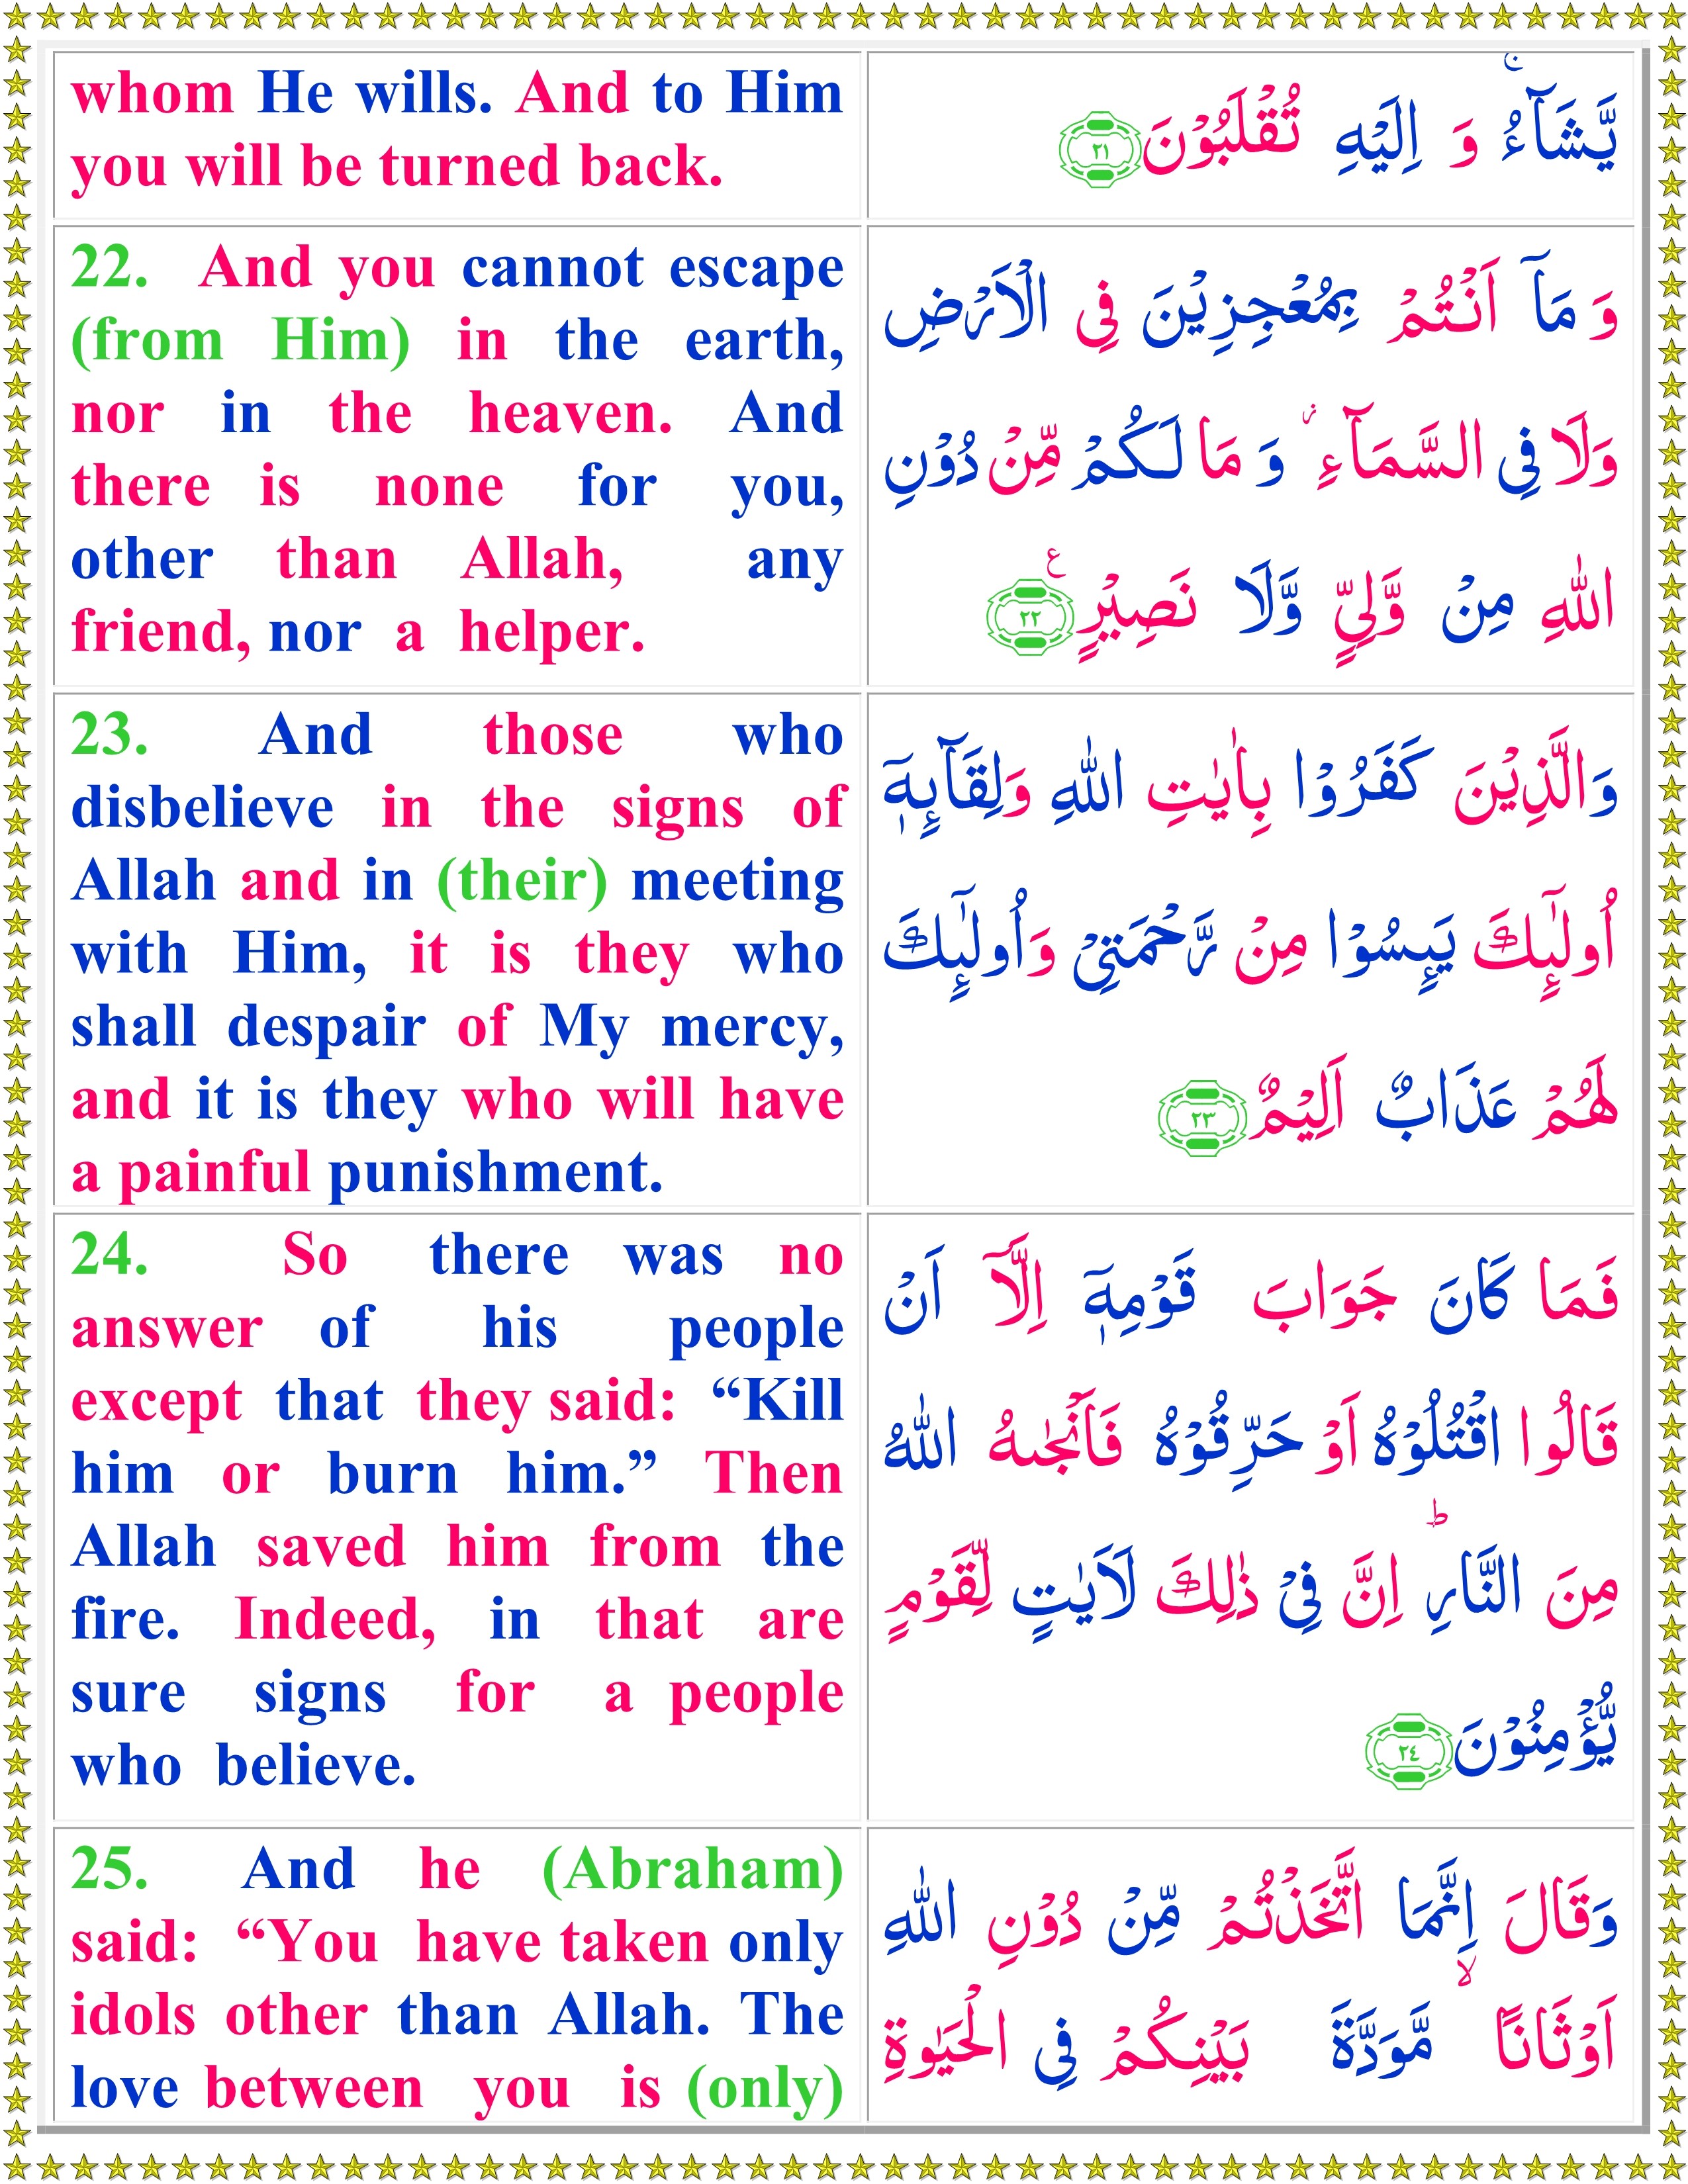 whom He wills. And to Him
you will be turned back.
يَّشَآءُ ۚ وَ اِلَيْهِ تُقْلَبُوْنَ ﴿۲۱﴾
22. And you cannot escape
(from Him) in the earth,
nor in the heaven. And
there is none for you,
other than Allah, any
friend, nor a helper.
وَ مَاۤ اَنْتُمْ بِمُعْجِزِيْنَ فِى الْاَرْضِ
وَلَا فِى السَّمَآءِ ؗ وَ مَا لَـكُمْ مِّنْ دُوْنِ
اللّٰهِ مِنْ وَّلِىٍّ وَّلَا نَصِيْرٍ ﴿۲۲﴾ ع
23. And those who
disbelieve in the signs of
Allah and in (their) meeting
with Him, it is they who
shall despair of My mercy,
and it is they who will have
a painful punishment.
وَالَّذِيْنَ كَفَرُوْا بِاٰيٰتِ اللّٰهِ وَلِقَآئِهٖۤ
اُولٰٓئِكَ يَئِسُوْا مِنْ رَّحْمَتِىْ وَاُولٰٓئِكَ
لَهُمْ عَذَابٌ اَلِيْمٌ ﴿۲۳﴾
24. So there was no
answer of his people
except that they said: “Kill
him or burn him.” Then
Allah saved him from the
fire. Indeed, in that are
sure signs for a people
who believe.
فَمَا كَانَ جَوَابَ قَوْمِهٖۤ اِلَّاۤ اَنْ
قَالُوا اقْتُلُوْهُ اَوْ حَرِّقُوْهُ فَاَنْجٰٮهُ اللّٰهُ
مِنَ النَّارِ ؕ اِنَّ فِىْ ذٰ لِكَ لَاٰيٰتٍ لِّقَوْمٍ
يُّؤْمِنُوْنَ ﴿۲٤﴾
25. And he (Abraham)
said: “You have taken only
idols other than Allah. The
love between you is (only)
وَقَالَ اِنَّمَا اتَّخَذْتُمْ مِّنْ دُوْنِ اللّٰهِ
اَوْثَانًا ۙ مَّوَدَّةَ بَيْنِكُمْ فِى الْحَيٰوةِ